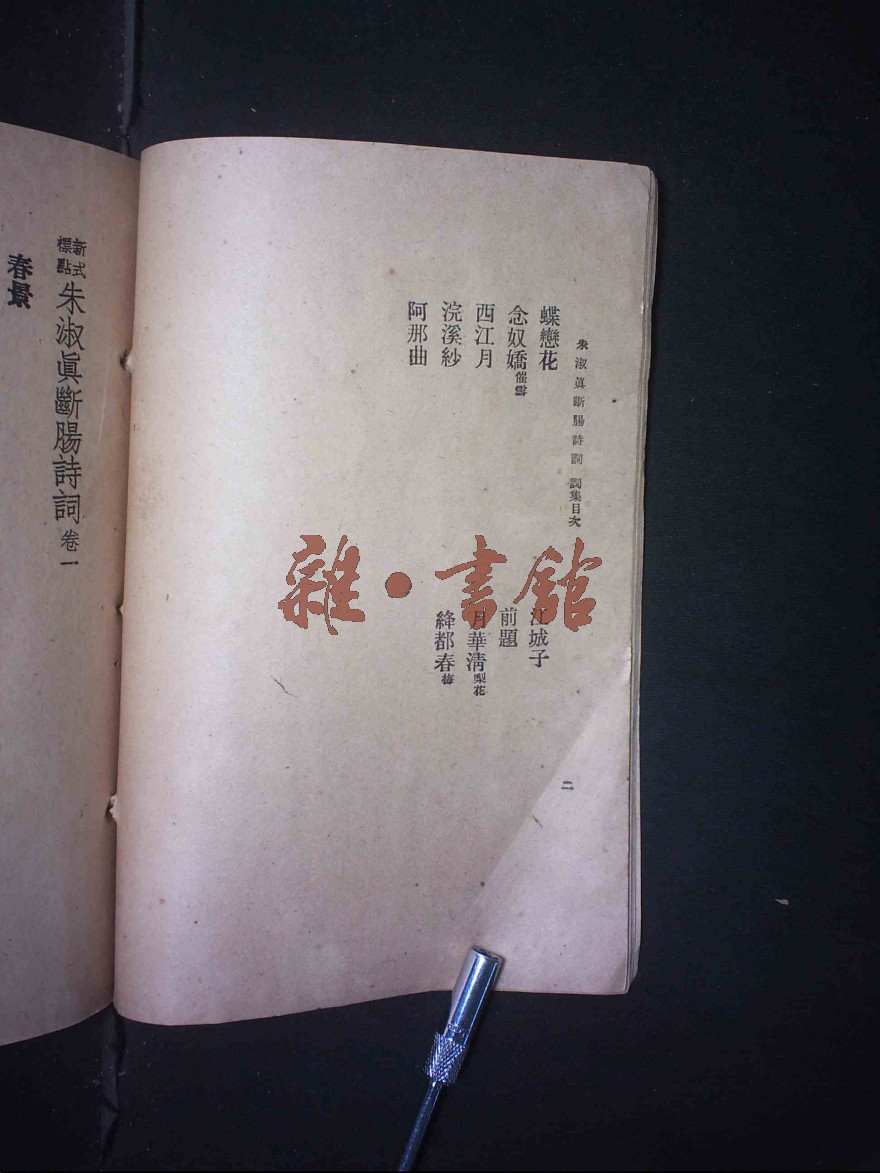 朱淑眞斷腸詩詞 詞集目次
蝶戀花
江城子
念奴嬌催雪
前題
西江月
月華清梨花
浣溪紗
絳都春梅
阿那曲
二
新式標點朱淑眞斷腸詩詞卷一
春景
雜·書館